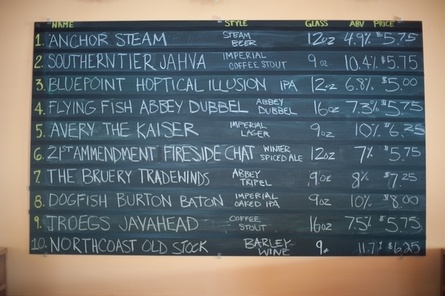 NAME STYLE GLASS ABV PRICE
1. ANCHOR STEAM STEAM BEER 12oz 4.9% $5.75
2. SOUTHERN TIER JAHVA IMPERIAL COFFEE STOUT 9oz 10.4% $5.75
3. BLUEPOINT HOPTICAL ILLUSION IPA 12oz 6.8% $5.00
4. FLYING FISH ABBEY DUBBEL ABBEY DUBBEL 16oz 7.3% $5.75
5. AVERY THE KAISER IMPERIAL LAGER 9oz 10% $6.25
6. 21ST AMMENDMENT FIRESIDE CHAT WINTER SPICED ALE 12oz 7% $5.75
7. THE BRUERY TRADEWINDS ABBEY TRIPEL 9oz 8% $7.25
8. DOGFISH BURTON BATON IMPERIAL OAKED IPA 9oz 10% $8.00
9. TROEGS JAVAHEAD COFFEE STOUT 16oz 7.5% $5.75
10. NORTHCOAST OLD STOCK BARLEY-WINE 9oz 11.7% $6.25